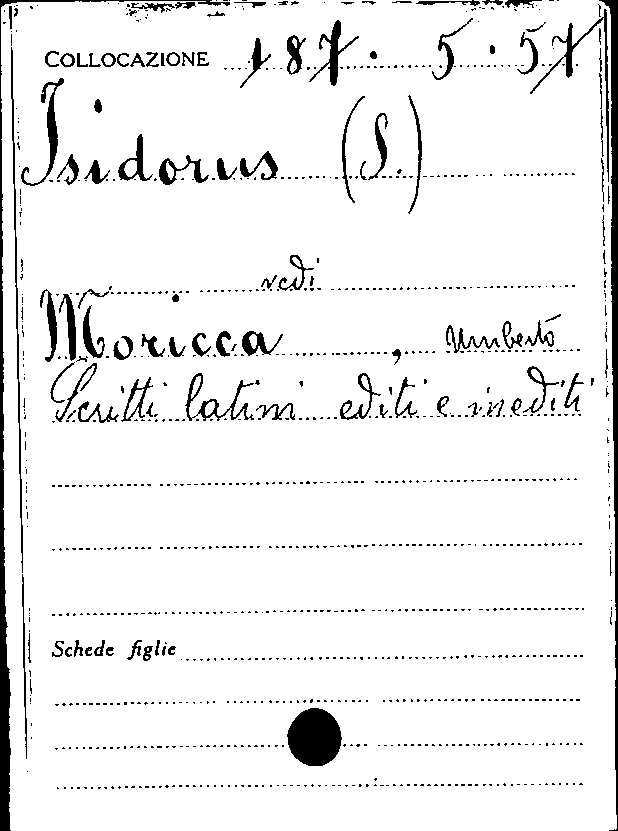 COLLOCAZIONE 187. 5. 57
Isidorus (S.)
vedi
Moricca, Umberto
Scritti latini editi e inediti
Schede figlie